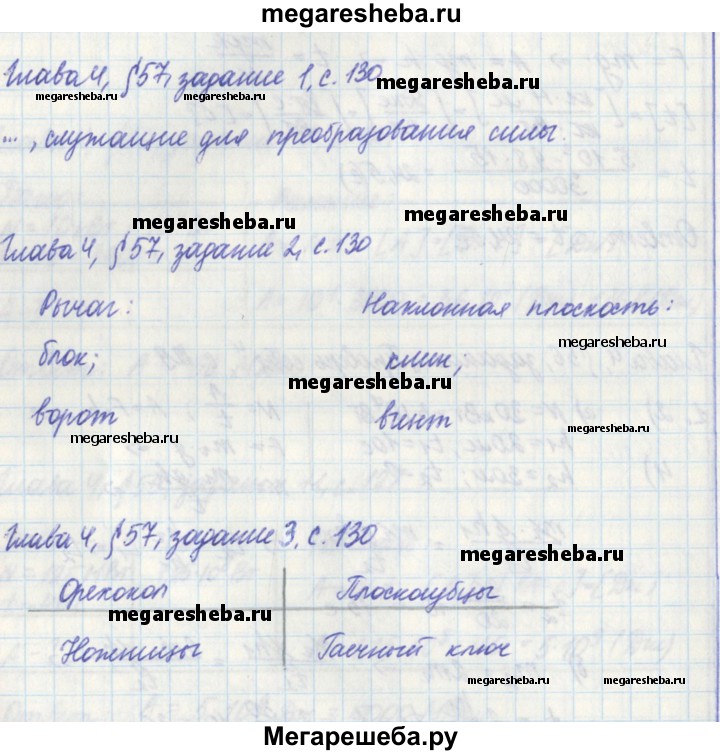 megaresheba.ru
Глава 4, §57, задание 1, с. 130
megaresheba.ru megaresheba.ru megaresheba.ru
..., служащие для преобразования силы.
megaresheba.ru megaresheba.ru
Глава 4, §57, задание 2, с. 130
Рычаг: Наклонная плоскость:
megaresheba.ru
блок; клин;
megaresheba.ru
ворот винт
megaresheba.ru megaresheba.ru
Глава 4, §57, задание 3, с. 130
megaresheba.ru
Орехокол Плоскогубцы
megaresheba.ru
Ножницы Гаечный ключ
megaresheba.ru megaresheba.ru
Мегарешеба.ру